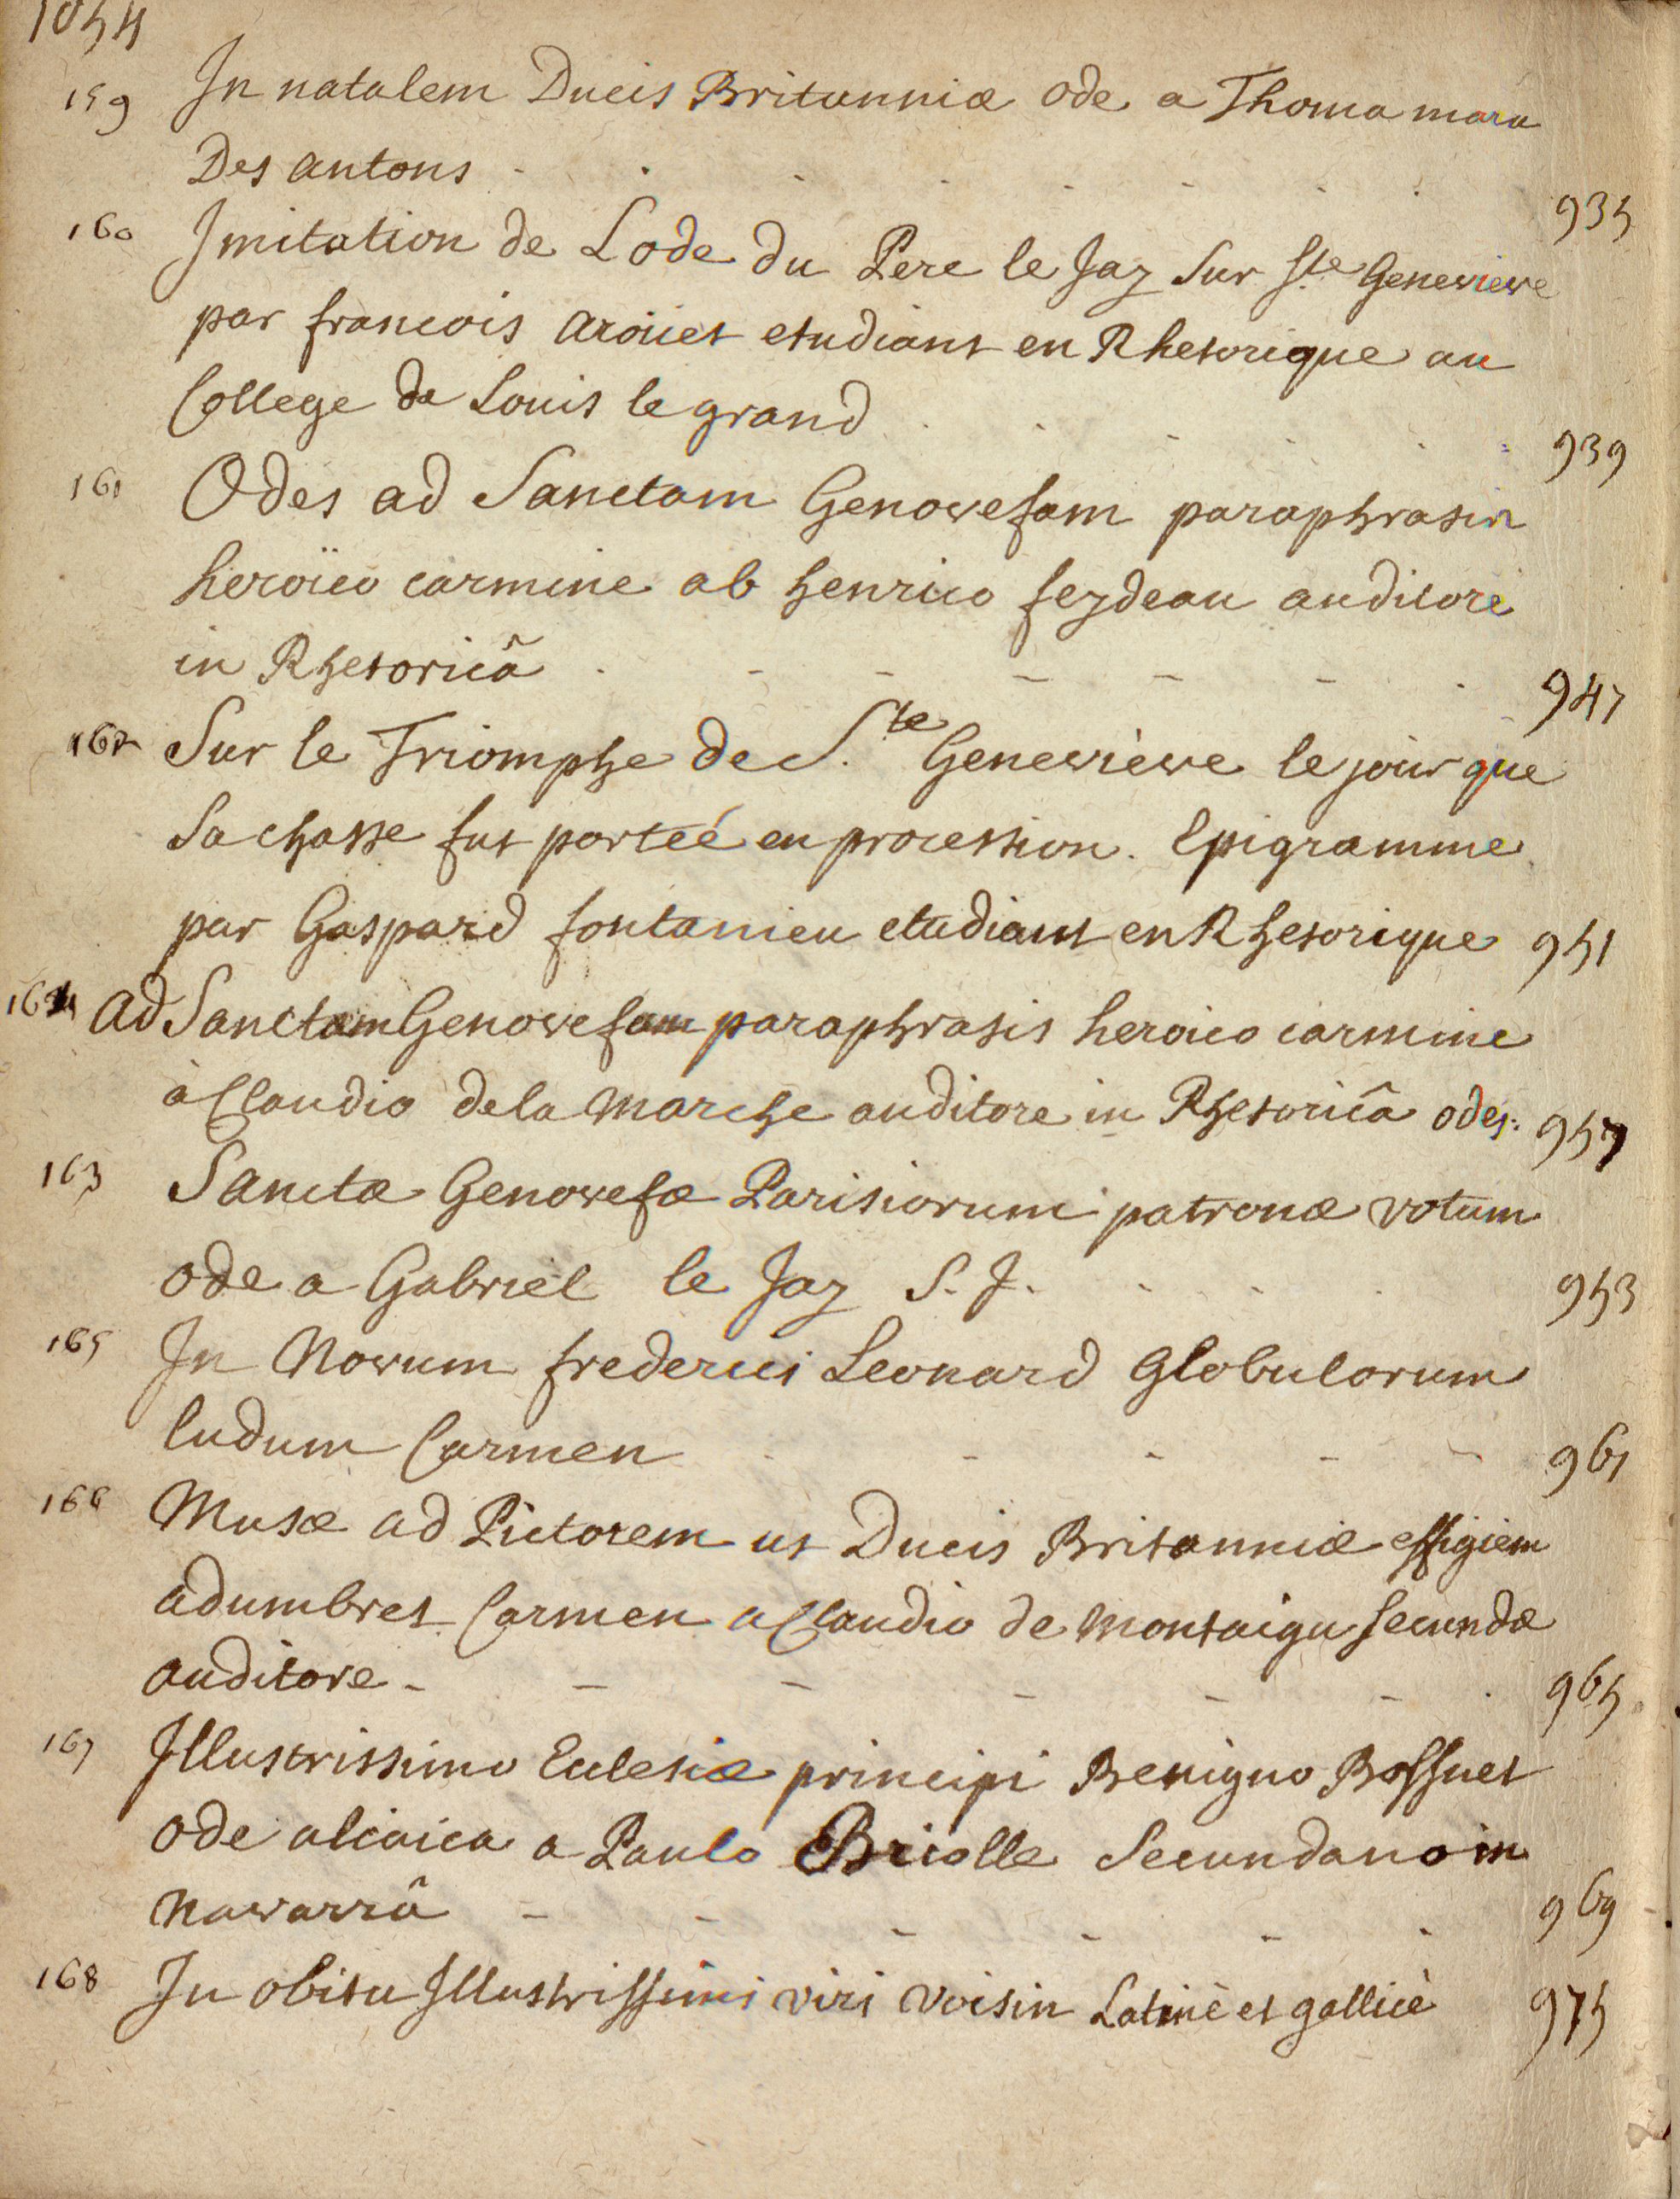 1054
159 In natalem Ducis Britanniæ ode a Thoma mara
Des antons 935
160 Imitation de Lode du Pere le Jay Sur Ste Genevieve
par francois aroüet etudiant en Rhetorique au
College de Louis le grand 939
161 Odes ad Sanctam Genovefam paraphrasin
heroïco carmine ab henrico feydeau auditore
in Rhetoricâ 947
162 Sur le Triomphe de S.te Genevieve le jour que
Sa chasse fut porteé en procession. Epigramme
par Gaspard fontanieu etudiant en Rhetorique 951
164 Ad Sanctam Genovefam paraphrasis heroico carmine
à Claudio de la Marche auditore in Rhetoricâ odes: 957
163 Sanctæ Genovefæ Parisiorum patronæ votum
ode a Gabriel le Jay S. J. 953
165 In Novum frederici Leonard Globulorum
ludum Carmen 961
166 Musæ ad Pictorem ut Ducis Britanniæ effigiem
adumbret Carmen a Claudio de Montaigu secundæ
auditore 965
167 Illustrissimo Eclesiæ principi Benigno Bossuet
ode alcaica a Paulo Bricolle Secundano in
Navarrâ 969
168 In obitu Illustrissimi viri Voisin Latinè et gallicè 975